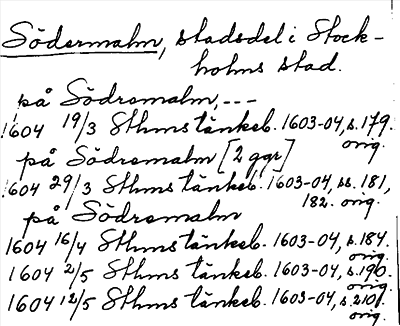 Södermalm, stadsdel i Stock-
holms stad.
på Södromalm, ---
1604 19/3 Sthms tänkeb. 1603-04, s. 179.
orig.
på Södromalm [2 ggr]
1604 29/3 Sthms tänkeb. 1603-04, ss. 181,
182. orig.
på Södromalm
1604 16/4 Sthms tänkeb. 1603-04, s. 184.
orig.
1604 2/5 Sthms tänkeb. 1603-04, s. 190.
orig.
1604 12/5 Sthms tänkeb. 1603-04, s. 210.
orig.